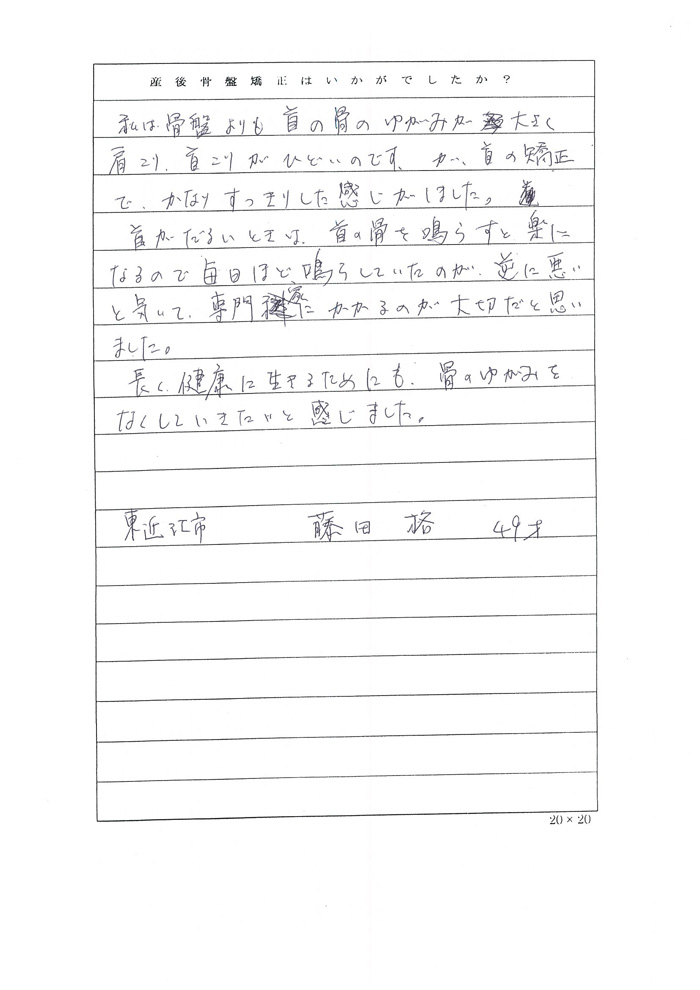 産後骨盤矯正はいかがでしたか？
私は骨盤よりも首の骨のゆがみが大きく
肩こり、首こりがひどいのです、が、首の矯正
で、かなりすっきりした感じがしました。
首がだるいときは、首の骨を鳴らすと楽に
なるので毎日ほど鳴らしていたのが、逆に悪い
と気いて、専門家にかかるのが大切だと思い
ました。
長く、健康に生きるためにも、骨のゆがみを
なくしていきたいと感じました。
東近江市 藤田 格 49才
20×20